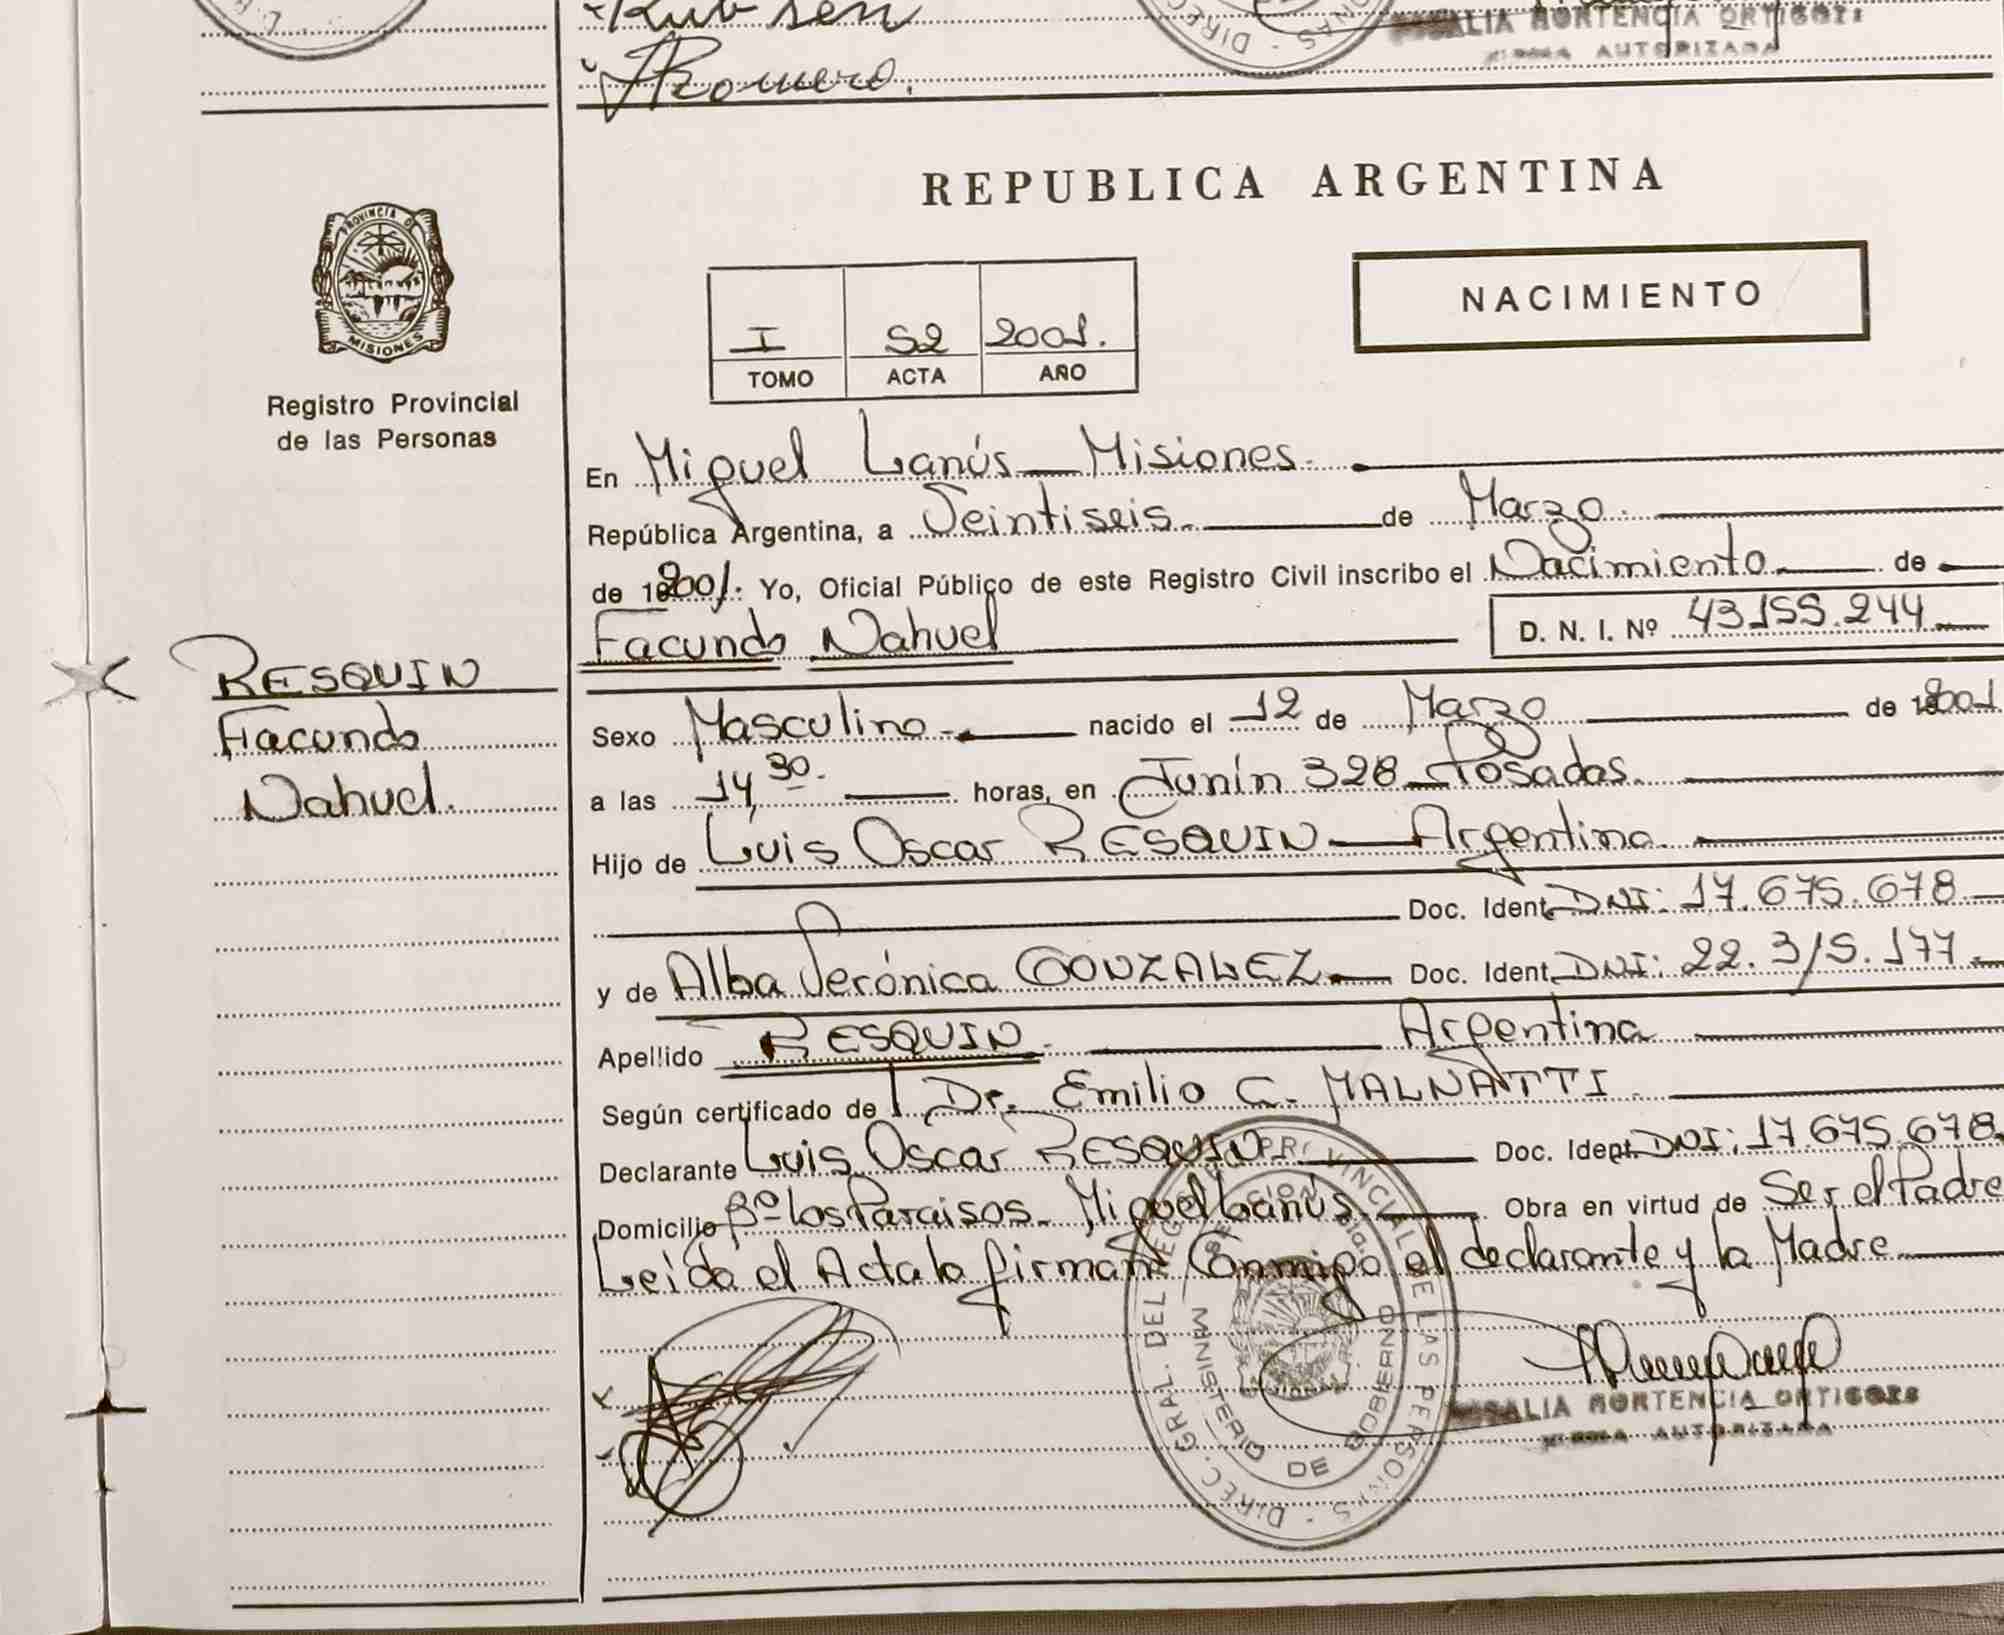 Rubsen
Romero.
ROSALIA HORTENCIA ORTIGOZA
FIRMA AUTORIZADA
REPUBLICA ARGENTINA
PROVINCIA DE
MISIONES
Registro Provincial
de las Personas
NACIMIENTO
I 52 2001.
TOMO ACTA AÑO
En Miguel Lanús - Misiones.
República Argentina, a Veintiseis. de Marzo.
de 2001. Yo, Oficial Público de este Registro Civil inscribo el Nacimiento de
Facundo Nahuel D. N. I. Nº 43155.244
RESQUIN
Facundo
Nahuel.
Sexo Masculino nacido el 12 de Marzo de 2001
a las 14,30. horas, en Junín 328 - Posadas.
Hijo de Luis Oscar RESQUIN - Argentino.
Doc. Ident. DNI: 17.675.678
y de Alba Verónica GONZALEZ Doc. Ident. DNI: 22.315.177
Apellido RESQUIN. Argentina
Según certificado de Dr. Emilio C. MALNATTI.
Declarante Luis Oscar RESQUIN Doc. Ident. DNI: 17.675.678
Domicilio Bº Los Paraisos - Miguel Lanús. Obra en virtud de Ser el Padre
Leída el Acta la firman Conmigo el declarante y la Madre
DIREC. GRAL. DEL REG. PROVINCIAL DE LAS PERSONAS
MINISTERIO DE GOBIERNO
ROSALIA HORTENCIA ORTIGOZA
FIRMA AUTORIZADA